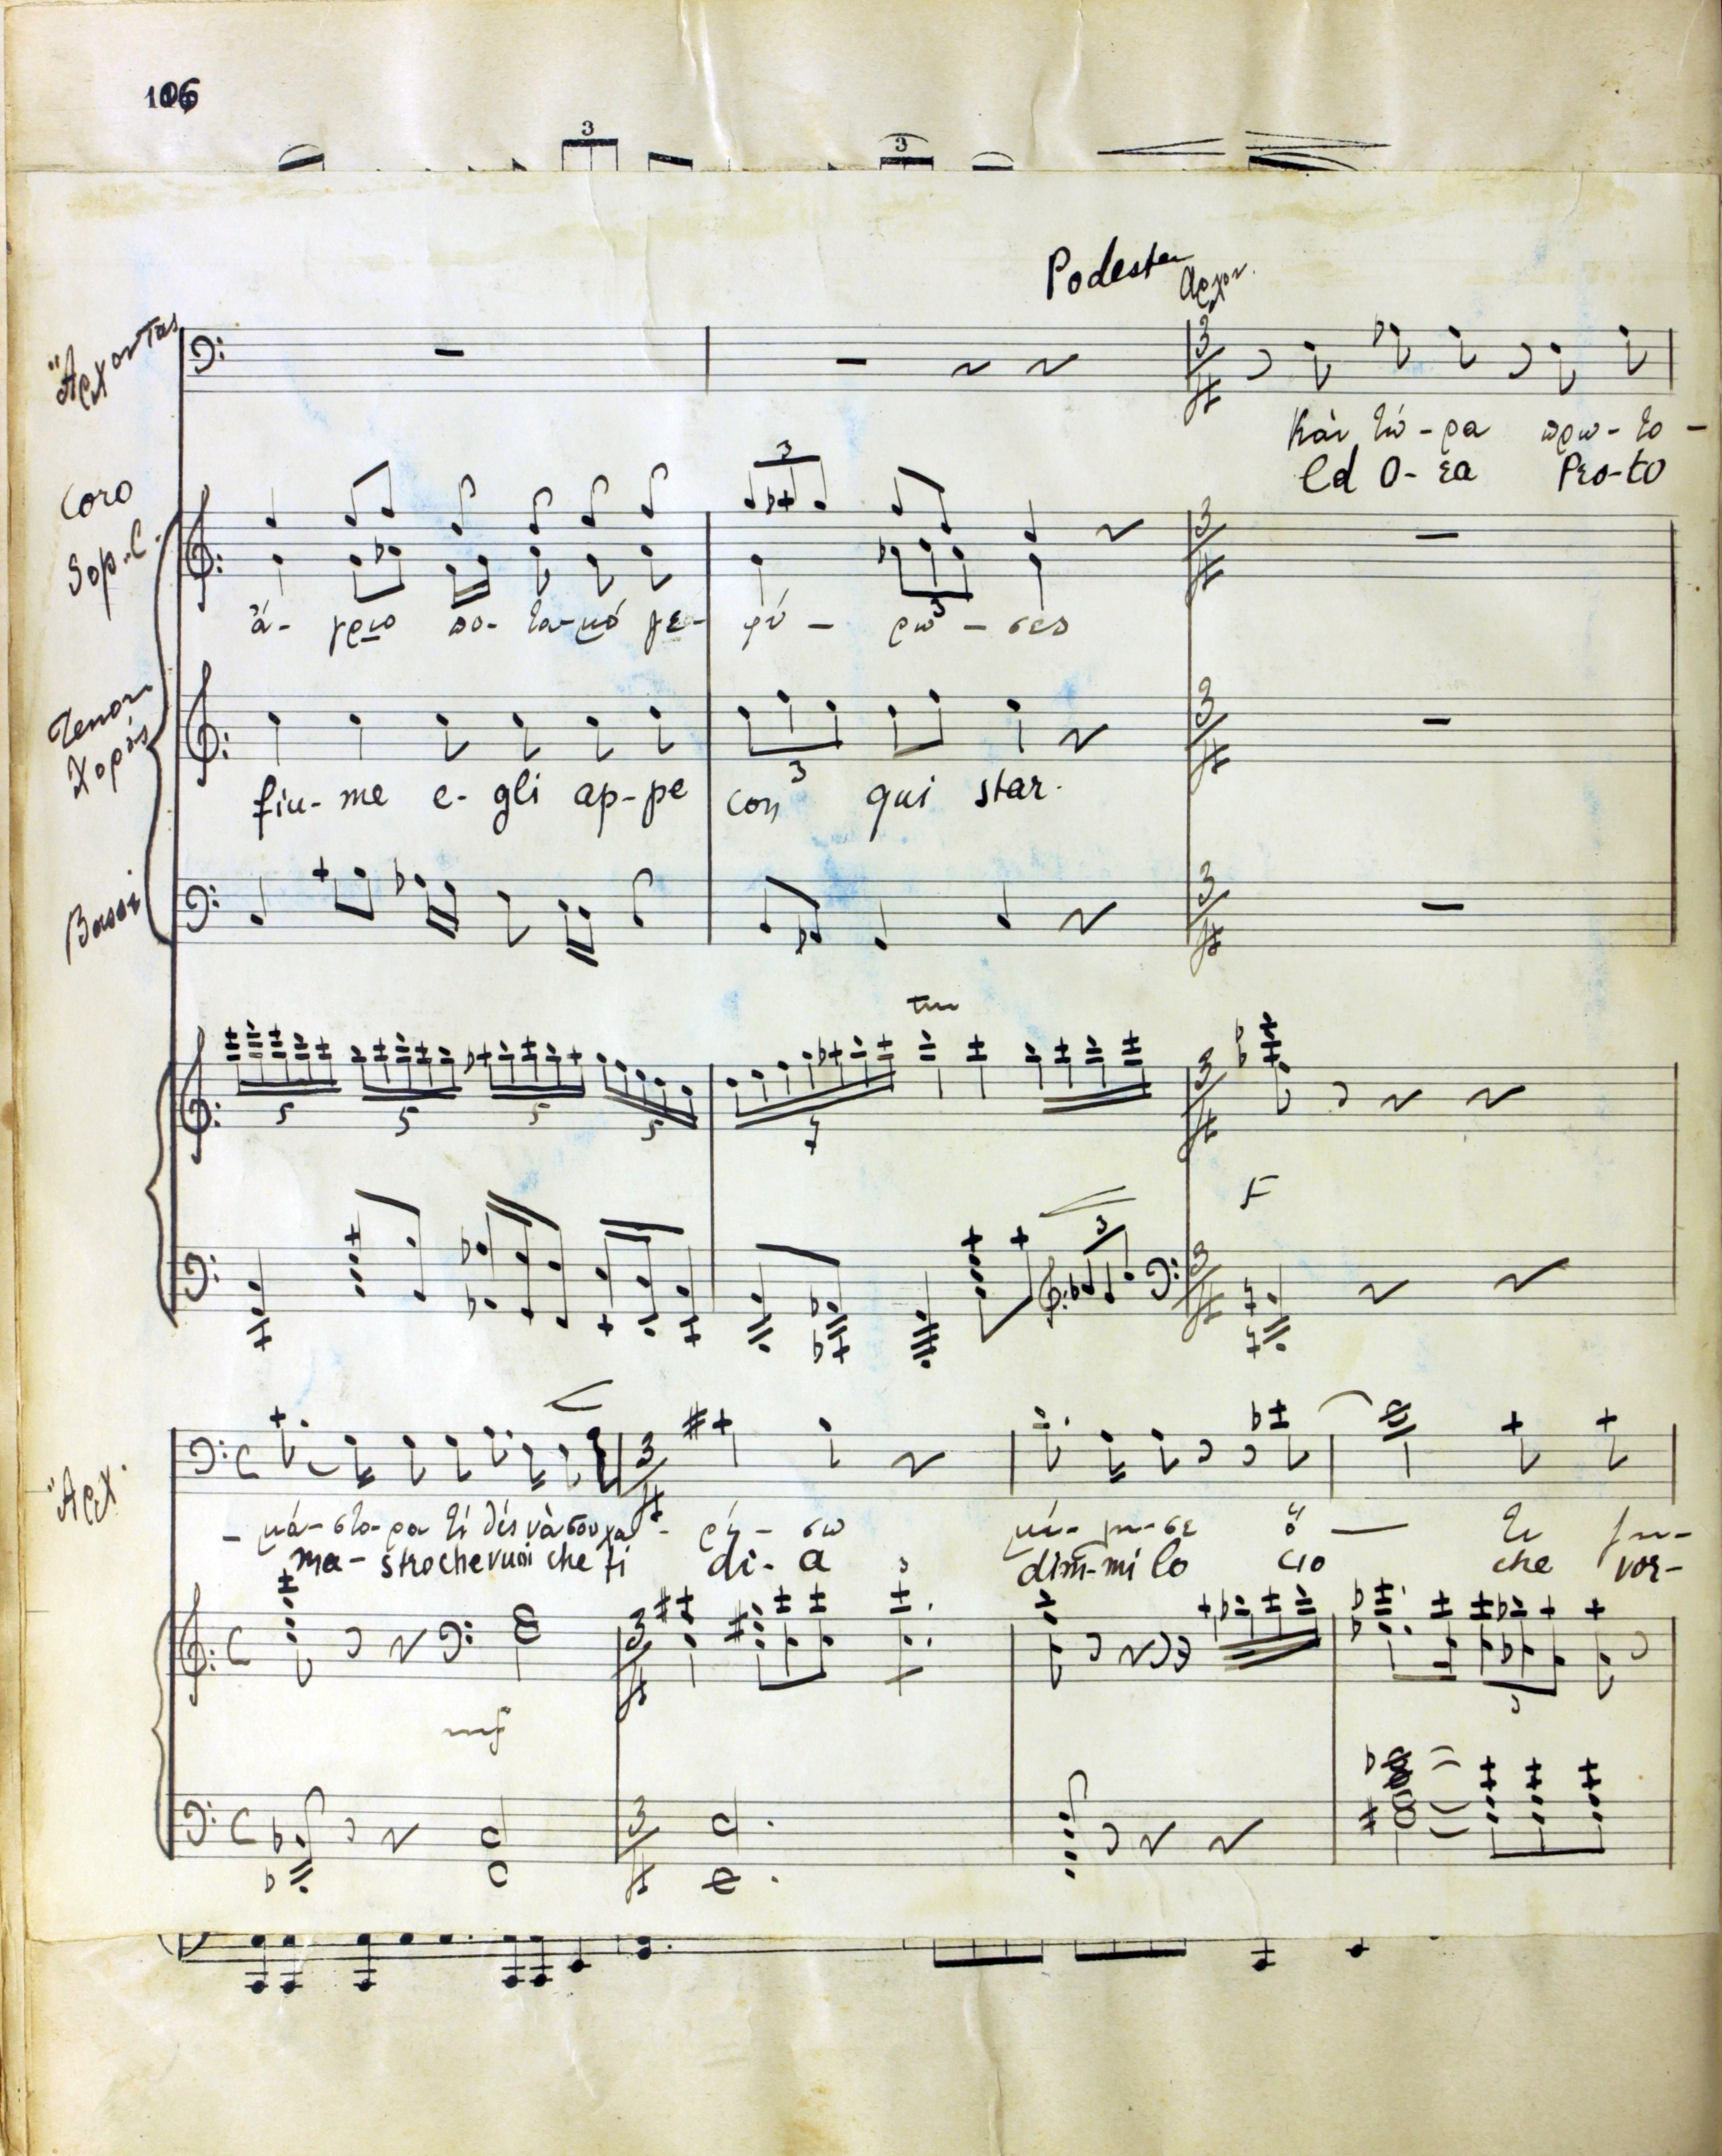 106
3 3
Podesta
Ἄρχοντας
Κὰι τώ-ρα πρω-το-
Ed O-ra Pro-to
Coro
Sop. C.
3
ἄ- γριο πο- τα-μό γε- φύ- ρω- σες
3
Tenori
Χορὸς
3
fiu- me e- gli ap-pe con qui star.
Bassi
tr
5 5 5 5 7
F
3
Ἄρχ.
- μά-στο-ρα τί θές νὰ σου χα- ρί- σω μί- λη-σε ὅ — τι
ma- stro che vuoi che ti di- a dim-mi lo cio che vor-
3
mf
3